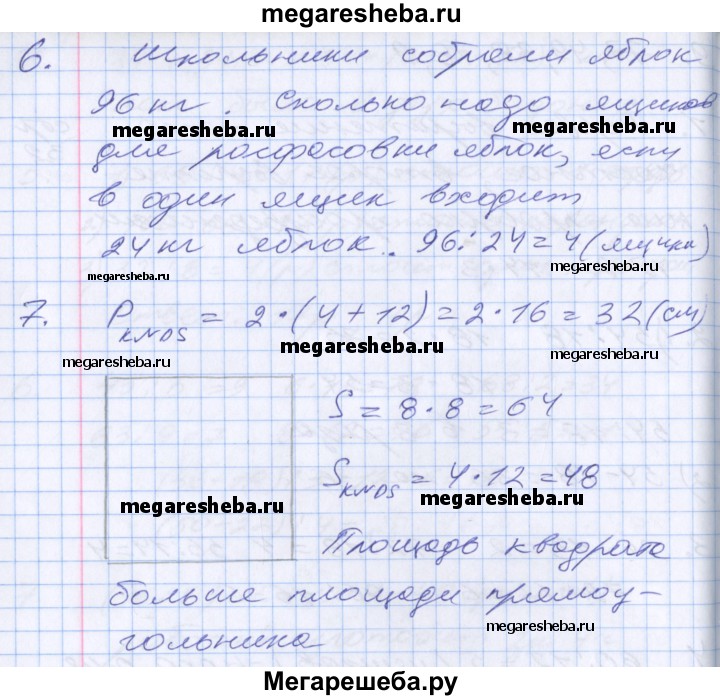 megaresheba.ru
6. Школьники собрали яблок
96 кг. Сколько надо ящиков
megaresheba.ru
megaresheba.ru
для росфасовки яблок, если
в один ящик входит
24 кг яблок. 96:24=4(ящика)
megaresheba.ru
megaresheba.ru
7. P KNDS = 2·(4+12)=2·16=32(см)
megaresheba.ru
megaresheba.ru
megaresheba.ru
S = 8·8=64
S KNDS = 4·12=48
megaresheba.ru
megaresheba.ru
Площадь квадрата
больше площади прямоу-
megaresheba.ru
гольника
Мегарешеба.ру